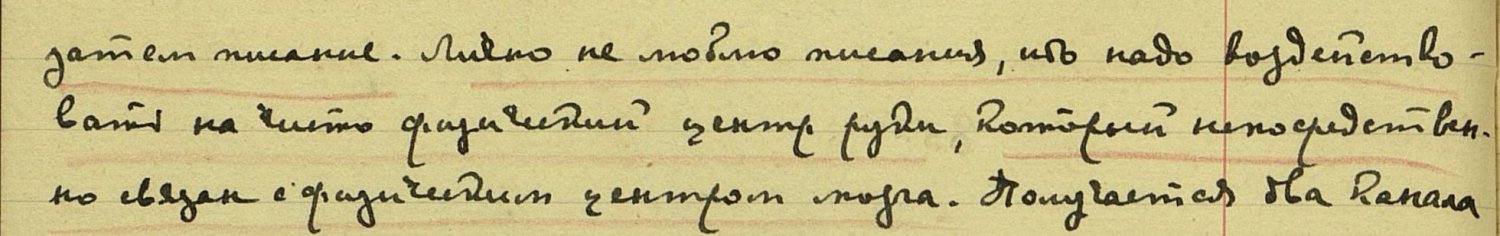 затем писание. Лично не люблю писания, ибо надо воздейство-
вать на чисто физический центр руки, который непосредствен-
но связан с физическим центром мозга. Получается два канала